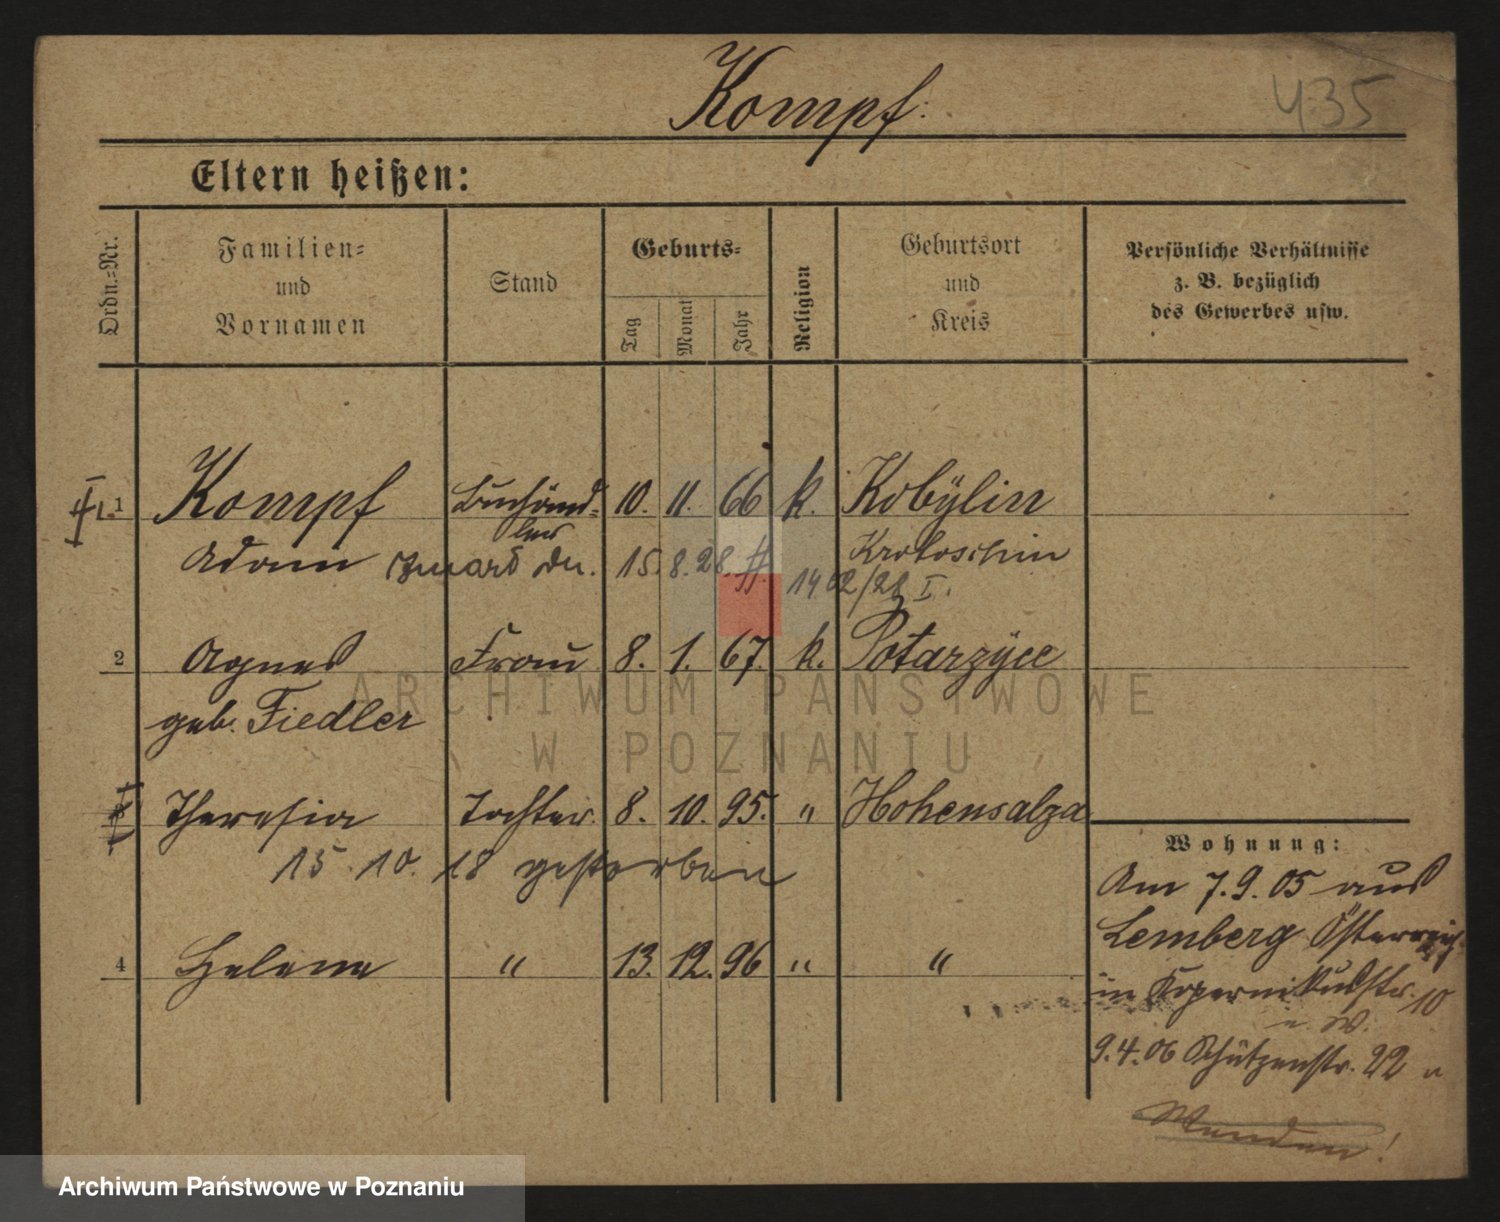 Kompf.
435
Eltern heißen:
Ordn.-Nr.
Familien-
und
Vornamen
Stand
Geburts-
Tag
Monat
Jahr
Religion
Geburtsort
und
Kreis
Persönliche Verhältnisse
z. B. bezüglich
des Gewerbes usw.
1 Kompf Buchhänd- 10. 11. 66 k. Kobylin
ler
Adam zmarł dn. 15. 8. 28. Krotoschin
1402/28 I.
2 Agnes Frau 8. 1. 67. k. Potarzyce
geb. Fiedler
ARCHIWUM PAŃSTWOWE
W POZNANIU
3 Theresia Tochter 8. 10. 95. " Hohensalza
15. 10. 18 gestorben
4 Helene " 13. 12. 96 " "
Wohnung:
Am 7.9.05 aus
Lemberg Österreich
in Kopernikusstr. 10
9.4.06 Schützenstr. 22
Wenden!
Archiwum Państwowe w Poznaniu